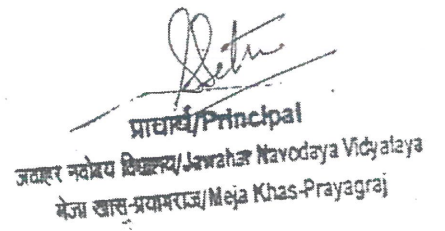 प्राचार्य/Principal
जवाहर नवोदय विद्यालय/Jawahar Navodaya Vidyalaya
मेजा खास-प्रयागराज/Meja Khas-Prayagraj